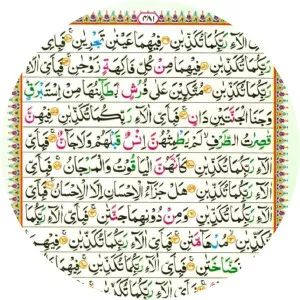 ۴۸۱
اٰلَآءِ رَبِّكُمَا تُكَذِّبٰنِ فِيْهِمَا عَيْنٰنِ تَجْرِيٰنِ فَبِاَيِّ
اٰلَآءِ رَبِّكُمَا تُكَذِّبٰنِ فِيْهِمَا مِنْ كُلِّ فَاكِهَةٍ زَوْجٰنِ فَبِاَيِّ اٰلَآءِ
رَبِّكُمَا تُكَذِّبٰنِ مُتَّكِـِٕيْنَ عَلٰى فُرُشٍۭ بَطَآىِٕنُهَا مِنْ اِسْتَبْرَقٍ
وَجَنَا الْجَنَّتَيْنِ دَانٍ فَبِاَيِّ اٰلَآءِ رَبِّكُمَا تُكَذِّبٰنِ فِيْهِنَّ
قٰصِرٰتُ الطَّرْفِ لَمْ يَطْمِثْهُنَّ اِنْسٌ قَبْلَهُمْ وَلَا جَآنٌّ فَبِاَيِّ
اٰلَآءِ رَبِّكُمَا تُكَذِّبٰنِ كَاَنَّهُنَّ الْيَاقُوْتُ وَالْمَرْجَانُ فَبِاَيِّ
اٰلَآءِ رَبِّكُمَا تُكَذِّبٰنِ هَلْ جَزَآءُ الْاِحْسَانِ اِلَّا الْاِحْسَانُ فَبِاَيِّ
اٰلَآءِ رَبِّكُمَا تُكَذِّبٰنِ وَمِنْ دُوْنِهِمَا جَنَّتٰنِ فَبِاَيِّ اٰلَآءِ رَبِّكُمَا
تُكَذِّبٰنِ مُدْهَآمَّتٰنِ فَبِاَيِّ اٰلَآءِ رَبِّكُمَا تُكَذِّبٰنِ
نَضَّاخَتٰنِ فَبِاَيِّ اٰلَآءِ رَبِّكُمَا تُكَذِّبٰنِ